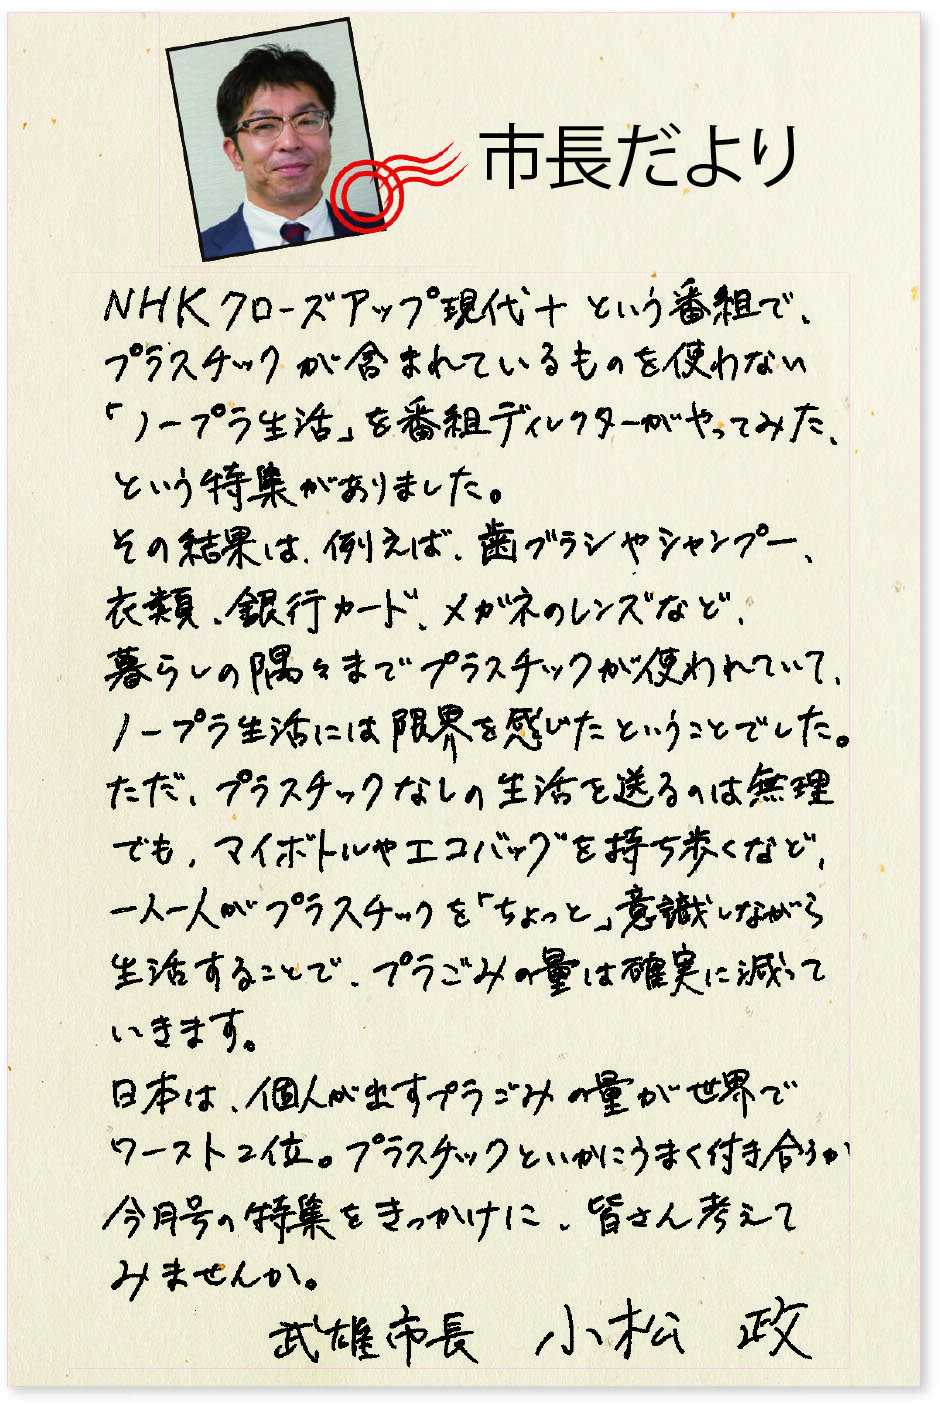 市長だより
NHKクローズアップ現代+という番組で、
プラスチックが含まれているものを使わない
「ノープラ生活」を番組ディレクターがやってみた、
という特集がありました。
その結果は、例えば、歯ブラシやシャンプー、
衣類、銀行カード、メガネのレンズなど、
暮らしの隅々までプラスチックが使われていて、
ノープラ生活には限界を感じたということでした。
ただ、プラスチックなしの生活を送るのは無理
でも、マイボトルやエコバッグを持ち歩くなど、
一人一人がプラスチックを「ちょっと」意識しながら
生活することで、プラごみの量は確実に減って
いきます。
日本は、個人が出すプラごみの量が世界で
ワースト2位。プラスチックといかにうまく付き合うか
今月号の特集をきっかけに、皆さん考えて
みませんか。
武雄市長 小松 政